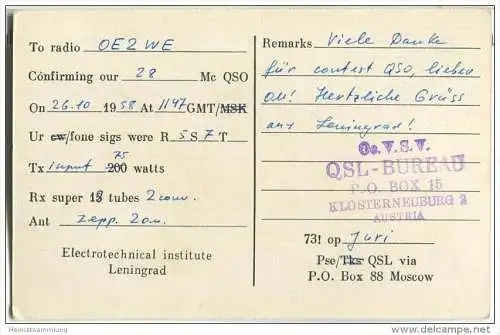 To radio OE2WE
Confirming our 28 Mc QSO
On 26.10 1958 At 1147 GMT/MSK
Ur cw/fone sigs were R 5 S 7 T
Tx input 75 200 watts
Rx super 18 tubes 2 conv.
Ant Zepp. 20 m.
Electrotechnical institute
Leningrad
Remarks Viele Danke
für contest QSO, lieber
OM! Hertzliche Grüss
aus Leningrad!
Oe.V.S.V.
QSL-BUREAU
P.O. BOX 15
KLOSTERNEUBURG 2
AUSTRIA
73! op Juri
Pse/Tks QSL via
P.O. Box 88 Moscow
Heimatsammlung
delcampe.net